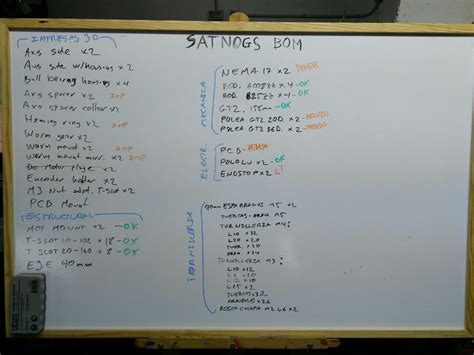 SATNOGS BOM
IMPRESAS 3D
Axis side x2
Axis side w/housing x2
Ball bearing housing x4
Axis spacer x2 IMP
Axis spacer collar x1
Homing ring x2 IMP
Worm gear x2
Worm mount x2 IMP
Worm mount mirr. x2 IMP
Encoder holter x2
M3 Nut adpt. T-Slot x2
PCD Mount
ESTRUCTURAL
MOT MOUNT x2 - OK
T-SLOT 20-102 x18 - OK
T-SLOT 20-160 x8 - OK
EJE 40mm
MECANICA
NEMA 17 x2 PEDIDOS
ROD. 6008ZZ x4 - OK
ROD. 625ZZ x4 - OK
GT2. 158mm - OK
POLEA GT2 20D. x2 - PEDIDO
POLEA GT2 36D. x2 - PEDIDO
ELECTR.
PCD - PEDIDA
POLOLU x2 - OK
ENDSTOP x2
TORNILLERIA
90mm ESPARRAGOS M5 x2
TUERCAS-ARAN. M5
TORNILLERIA M4:
L10 x32
L20
TUER. x30
ARAN. x34
TORNILLERIA M3:
L10 x20
L12 x10
L15 x2
TUERCAS
ARANDELAS x26
ROSCA CHAPA M2 L6 x2